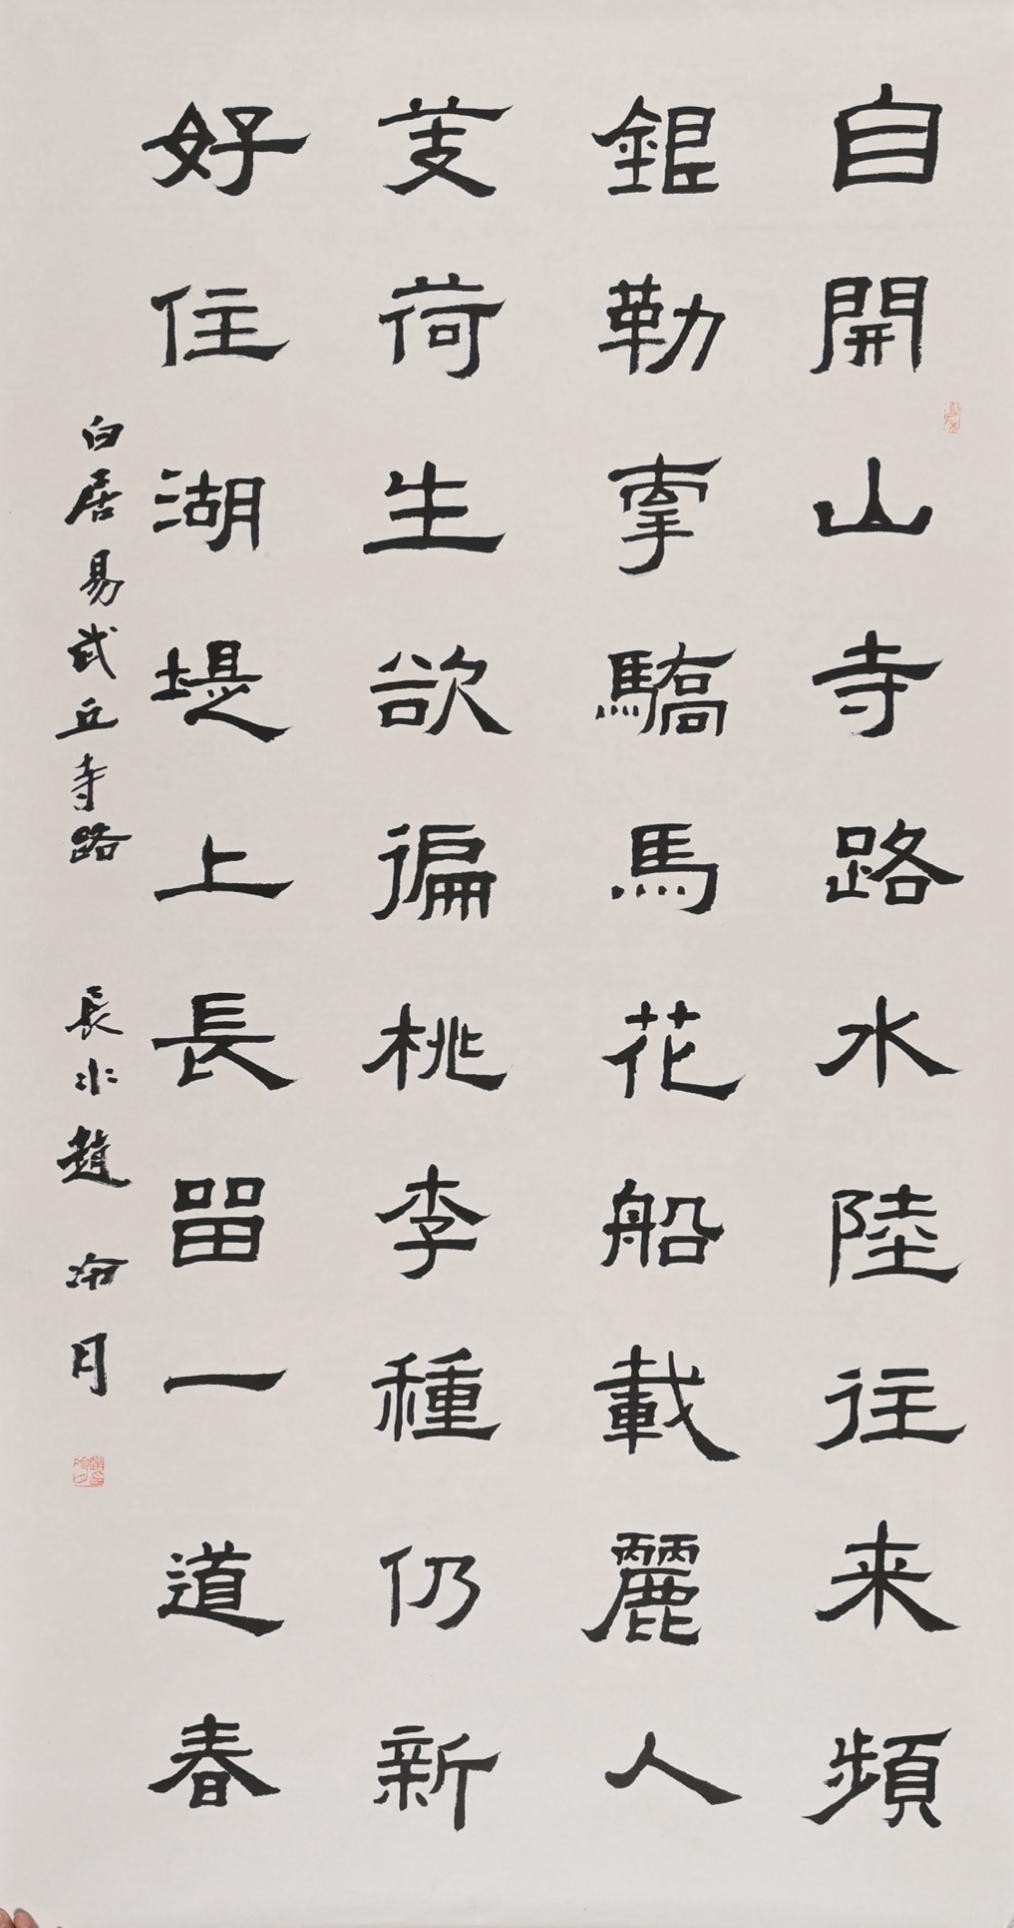 自開山寺路水陸往来頻
銀勒牽驕馬花船載麗人
芰荷生欲徧桃李種仍新
好住湖堤上長留一道春
白居易武丘寺路
長水趙冷月